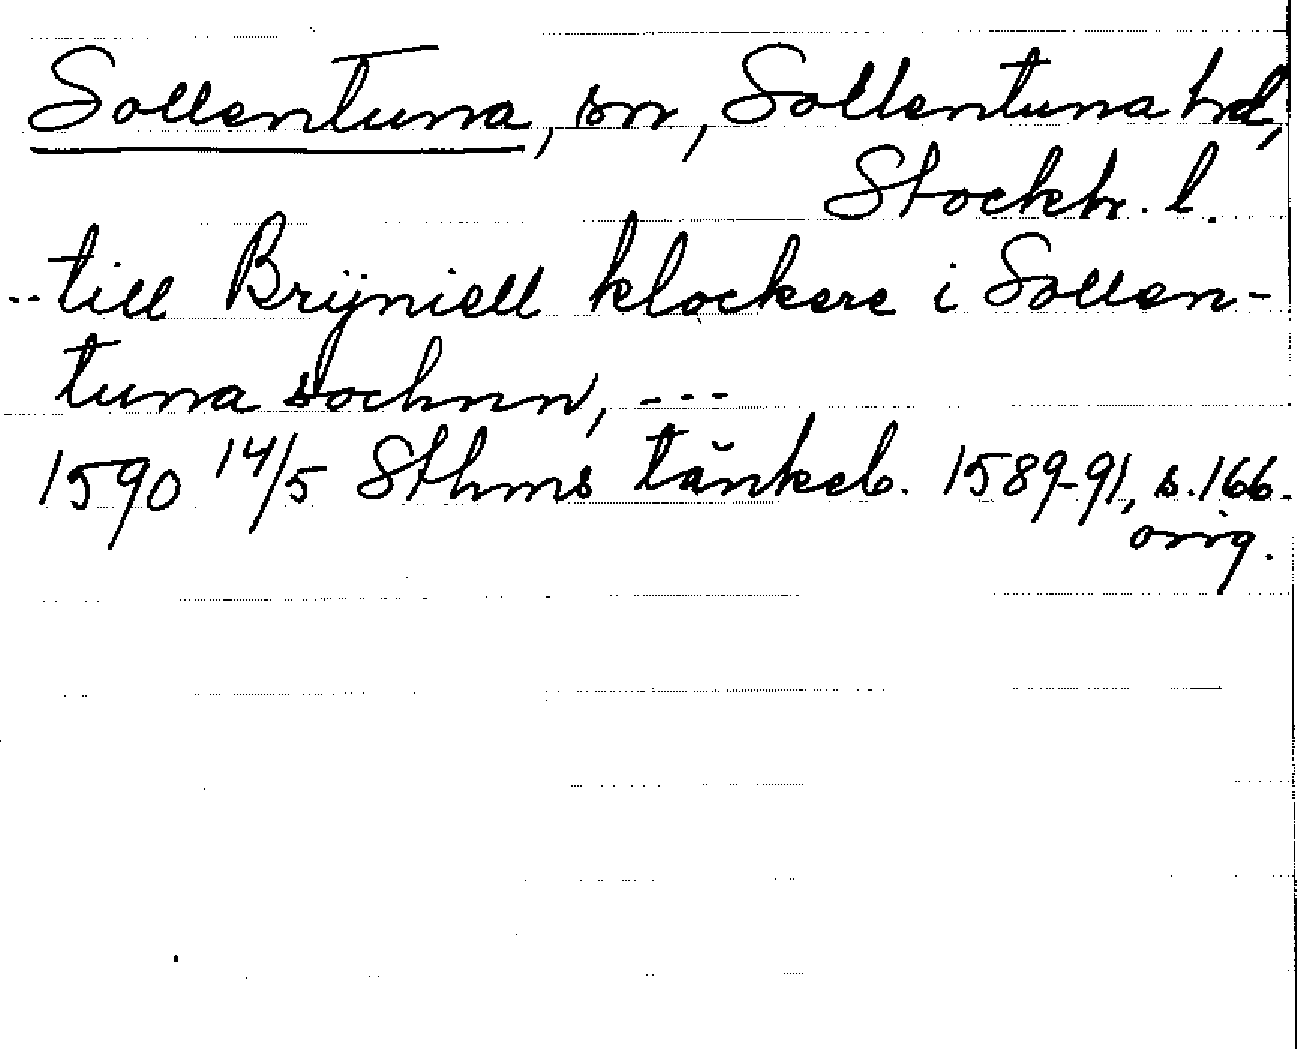 Sollentuna, sn, Sollentuna hd,
Stockh. l.
..till Brÿniell klockere i Sollen-
tuna sochnn, ---
1590 14/5 Sthms tänkeb. 1589-91, s.166.
orig.